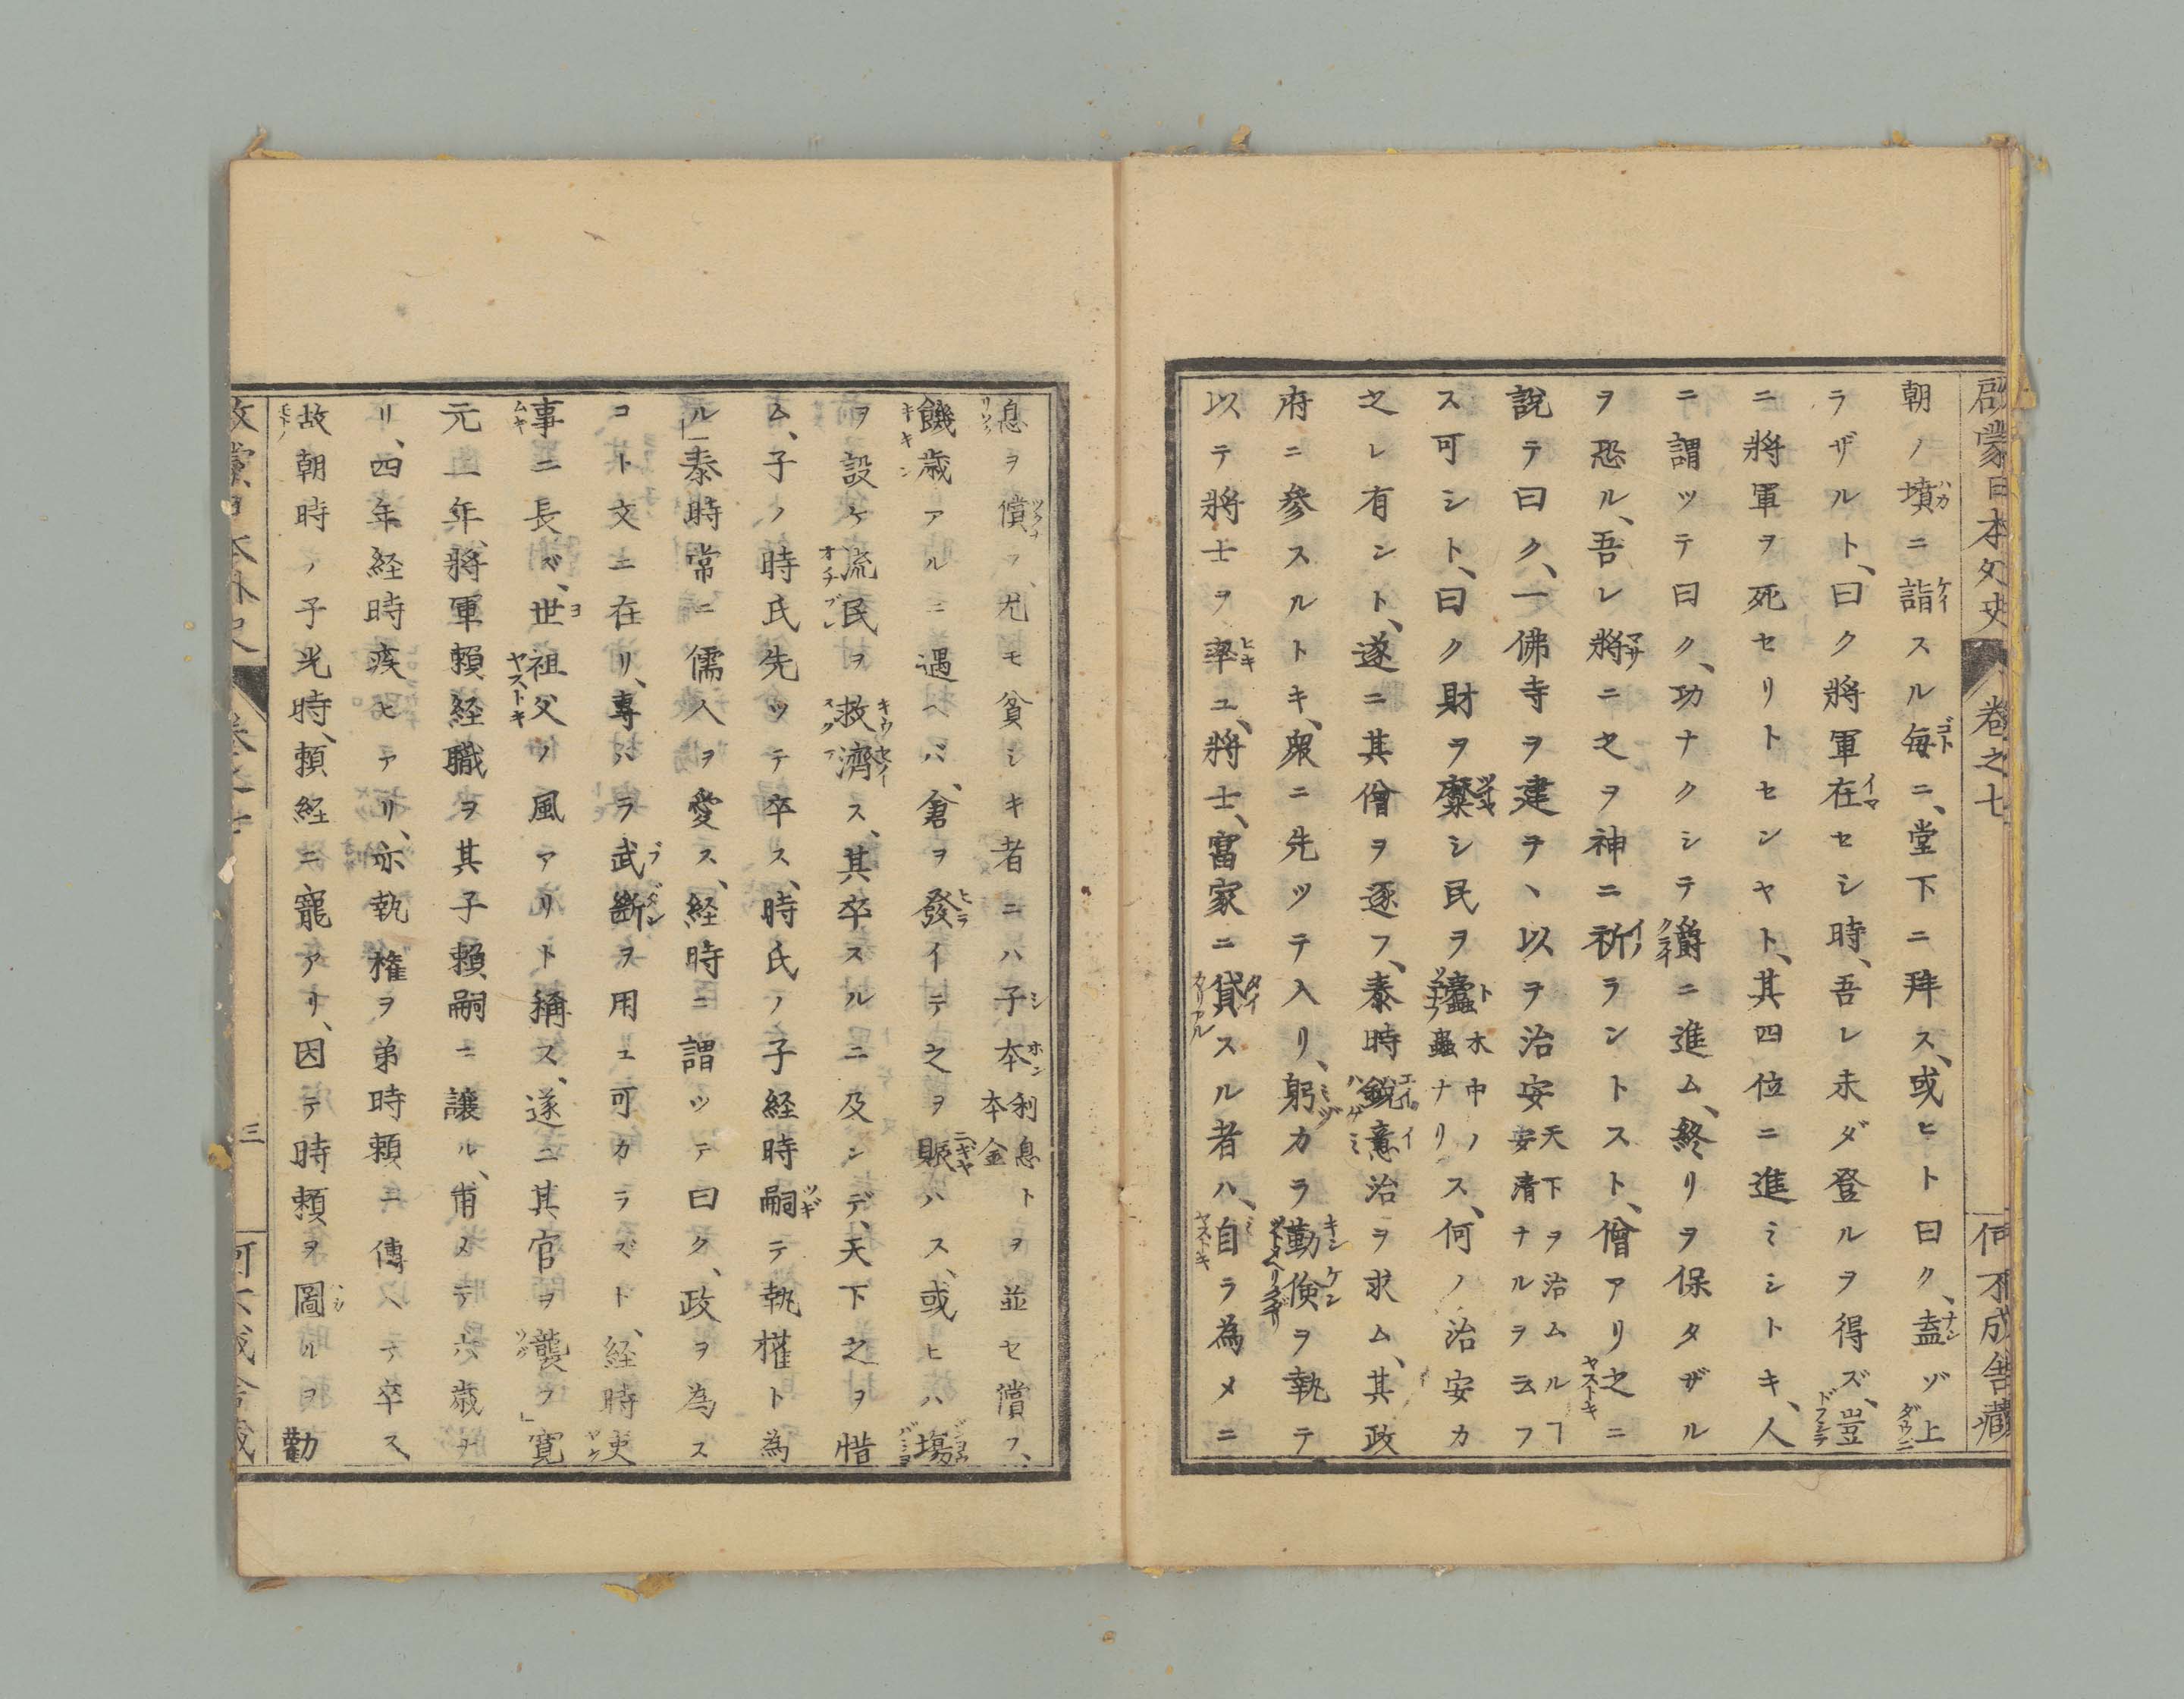 啟蒙日本外史 卷之七 何不成舎藏
朝ノ墳ニ詣スル毎ニ、堂下ニ拜ス、或ヒト曰ク、盍ゾ上
ラザルト、曰ク將軍在セシ時、吾レ未ダ登ルヲ得ズ、豈
ニ將軍ヲ死セリトセンヤト、其四位ニ進ミシトキ、人
ニ謂ツテ曰ク、功ナクシテ爵ニ進ム、終リヲ保タザル
ヲ恐ル、吾レ將ニ之ヲ神ニ祈ラントスト、僧アリ之ニ
說テ曰ク、一佛寺ヲ建テヽ以ヲ治安天下ヲ治ムルヿ安清ナルヲ云フ
ス可シト、曰ク財ヲ糜シ民ヲ蠧ト木中ノ蟲ナリス、何ノ治安カ
之レ有ント、遂ニ其僧ヲ逐フ、泰時鋭意治ヲ求ム、其政
府ニ參スルトキ、衆ニ先ツテ入リ、躬カラ勤儉ヲ執テ
以テ將士ヲ率ユ、將士、富家ニ貸スル者ハ、自ラ為メニ
息ヲ償フ、尤モ貧シキ者ニハ子本利息本金トヲ並セ償フ、
饑歲アルニ遇ヘバ、倉ヲ發イテ之ヲ賑ハス、或ヒハ塲
ヲ設ケ流民ヲ救濟ス、其卒スルニ及ンデ、天下之ヲ惜
ム、子ノ時氏先ツテ卒ス、時氏ノ子経時嗣テ執權ト為
ル」泰時常ニ儒人ヲ愛ス、経時ニ謂ツテ曰ク、政ヲ為ス
コト文ニ在リ、專ハラ武斷ヲ用ユ可カラズト、経時吏
事ニ長ズ、世祖父ノ風アリト稱ス、遂ニ其官ヲ襲フ」寛
元二年、將軍賴経職ヲ其子賴嗣ニ讓ル、甫メテ六歲ナ
リ、四年経時疾ヒアリ、亦執權ヲ弟時賴ニ傳ヘテ卒ス、
故朝時ノ子光時、賴経ニ寵アリ、因テ時賴ヲ圖ルヲ勸
啟蒙日本外史 卷之七 三 何不成舎藏